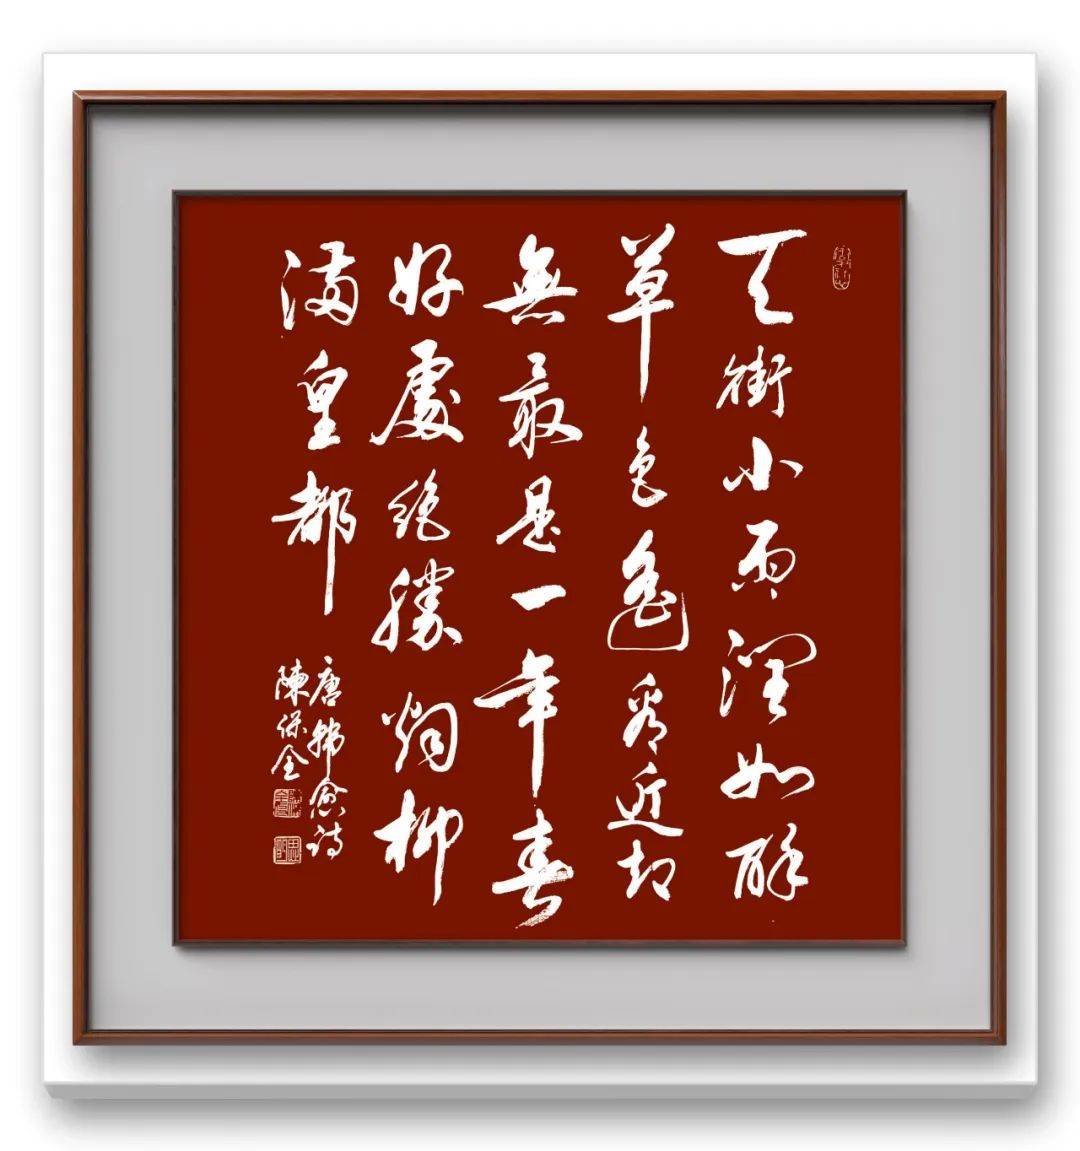 天街小雨潤如酥
草色遙看近却
無最是一年春
好處絕勝烟柳
滿皇都
唐韓愈詩
陳保全